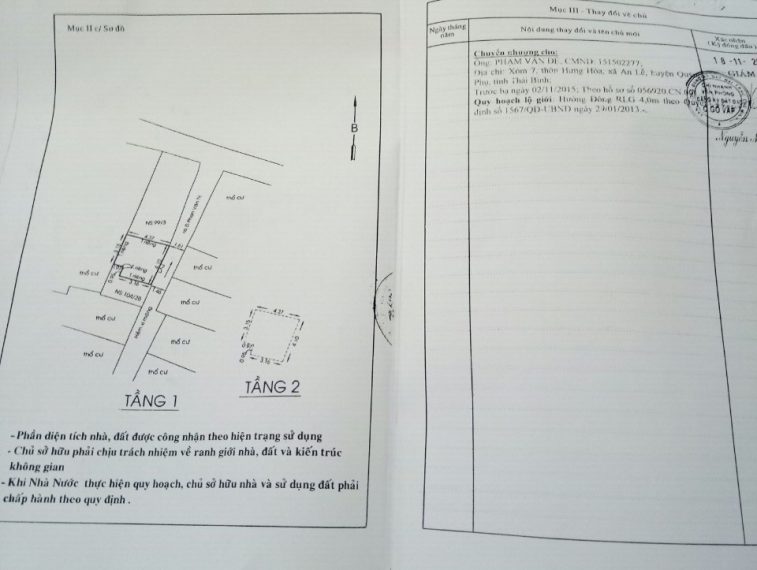 Mục II c/ Sơ đồ
B
NS:99/3
mồ cư
4.37
1.61
mồ cư
mồ cư
NS:10A/2B
mồ cư
mồ cư
mồ cư
mồ cư
4.37
3.15
4.10
3.16
TẦNG 1
TẦNG 2
- Phần diện tích nhà, đất được công nhận theo hiện trạng sử dụng
- Chủ sở hữu phải chịu trách nhiệm về ranh giới nhà, đất và kiến trúc
không gian
- Khi Nhà Nước thực hiện quy hoạch, chủ sở hữu nhà và sử dụng đất phải
chấp hành theo quy định .
Mục III - Thay đổi về chủ
Ngày tháng
năm
Nội dung thay đổi và tên chủ mới
Xác nhận
(Ký đóng dấu
Chuyển nhượng cho:
Ông: PHẠM VĂN ĐỆ, CMND: 151502277,
Địa chỉ: Xóm 7, thôn Hưng Hòa, xã An Lễ, huyện
Phụ, tỉnh Thái Bình.
Trước bạ ngày 02/11/2015; Theo hồ sơ số 056920.CN.
Quy hoạch lộ giới: Hướng Đông RLG 4,0m theo
định số 1567/QĐ-UBND ngày 2 /01/2013.-
18-11-2
GIÁM
VĂN PHÒNG
Q.GÒ VẤP
Nguyễn